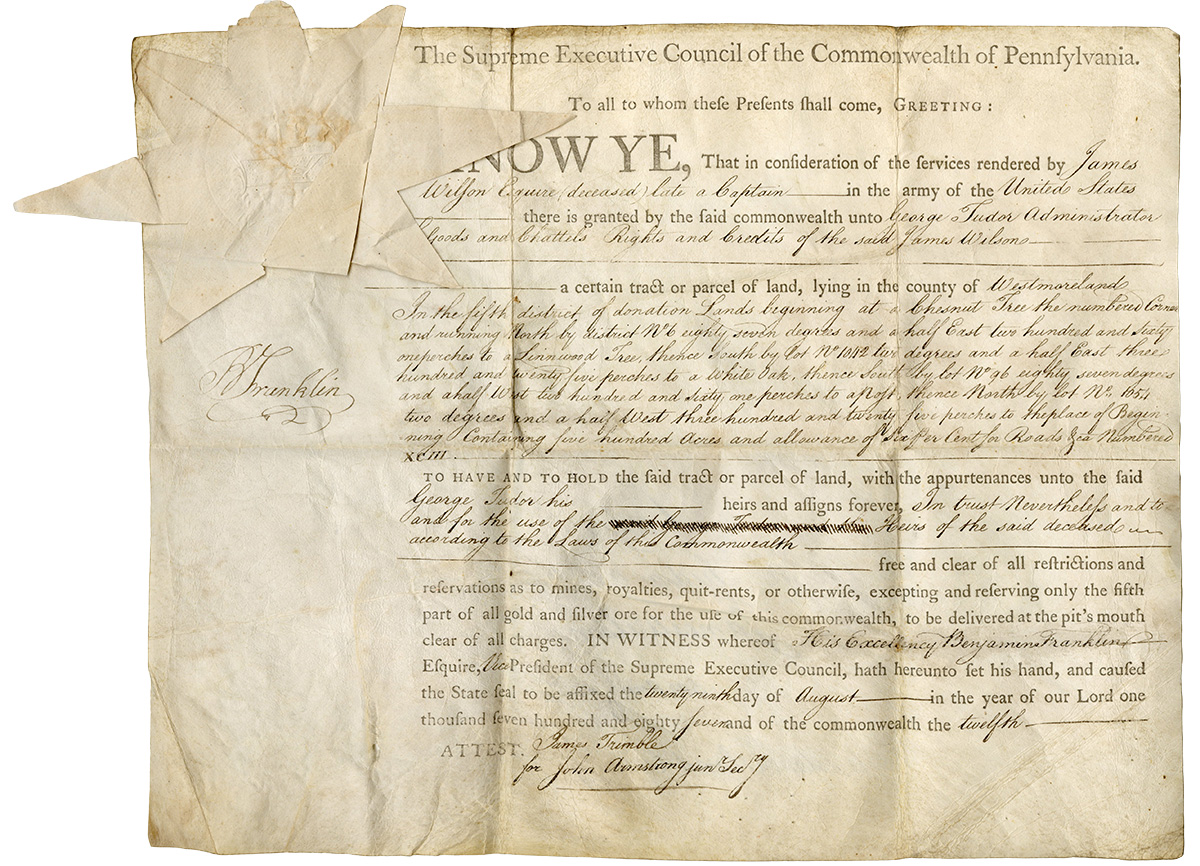 The Supreme Executive Council of the Commonwealth of Pennſylvania.
To all to whom theſe Preſents ſhall come, GREETING:
NOW YE, That in conſideration of the ſervices rendered by James
Wilſon Esquire, deceased, late a Captain in the army of the United States
there is granted by the ſaid commonwealth unto George Tudor Administrator
Goods and Chattels Rights and Credits of the said James Wilson
a certain tract or parcel of land, lying in the county of Westmoreland
In the fifth district of donation Lands beginning at a Chesnut Tree the numbered Corner
and running North by district No 6 eighty seven degrees and a half East two hundred and Sixty
one perches to a Linnwood Tree, thence South by lot No 1042 two degrees and a half East three
hundred and twenty five perches to a White Oak, thence South by lot No 96 eighty seven degrees
and a half West two hundred and Sixty one perches to a Post, thence North by lot No. 1051
two degrees and a half West three hundred and twenty five perches to the place of Begin-
ning Containing five hundred Acres and allowance of Six Per Cent for Roads &ca Numbered
XCIII
TO HAVE AND TO HOLD the ſaid tract or parcel of land, with the appurtenances unto the ſaid
George Tudor his heirs and aſſigns forever, In trust Nevertheleſs and to
and for the use of the Heirs of the said deceased
according to the Laws of this Commonwealth
free and clear of all reſtrictions and
reſervations as to mines, royalties, quit-rents, or otherwiſe, excepting and reſerving only the fifth
part of all gold and ſilver ore for the uſe of this commonwealth, to be delivered at the pit's mouth
clear of all charges. IN WITNESS whereof His Excellency Benjamin Franklin
Eſquire, Vice Preſident of the Supreme Executive Council, hath hereunto ſet his hand, and cauſed
the State ſeal to be affixed the twenty ninth day of August in the year of our Lord one
thouſand ſeven hundred and eighty ſeven and of the commonwealth the twelfth
ATTEST. James Trimble
for John Armstrong junr Secry
B Franklin